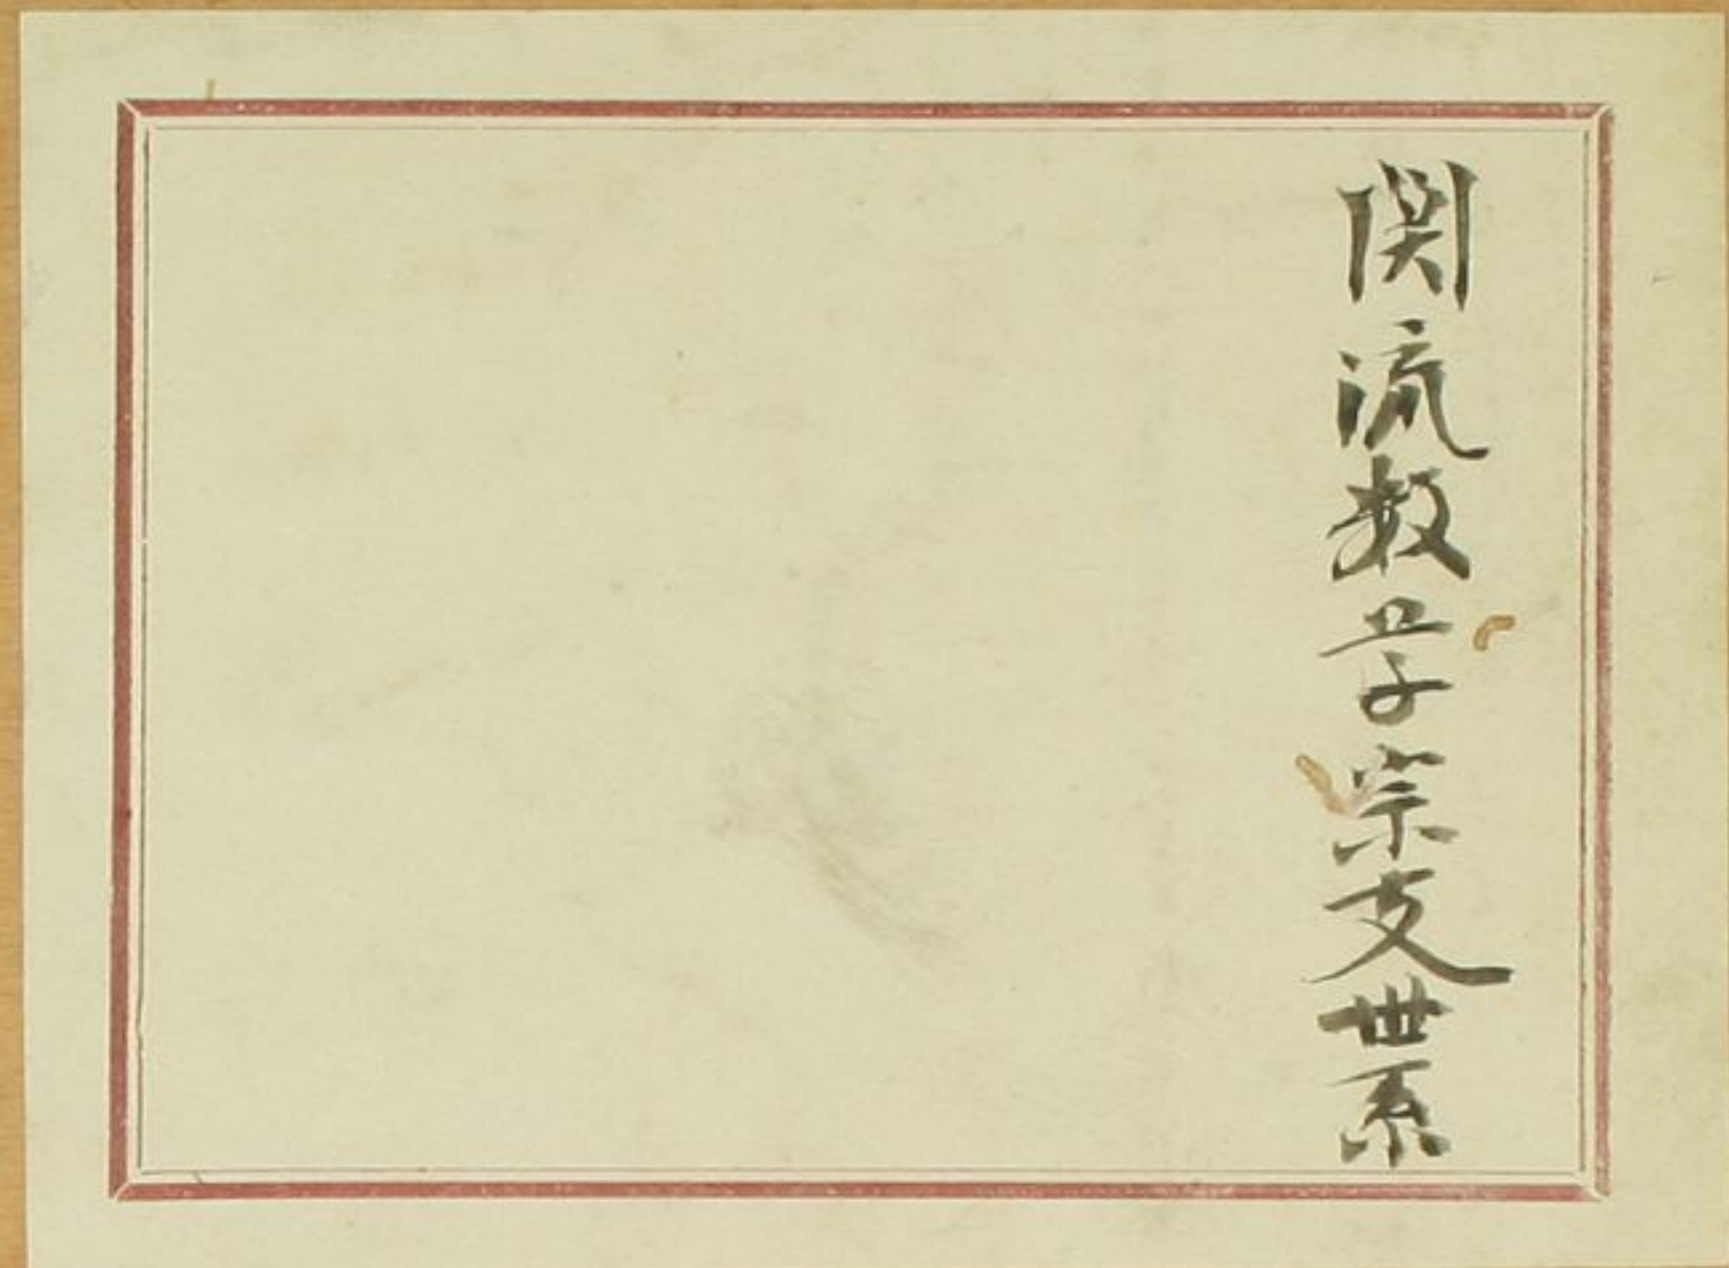 関流数学宗支世系